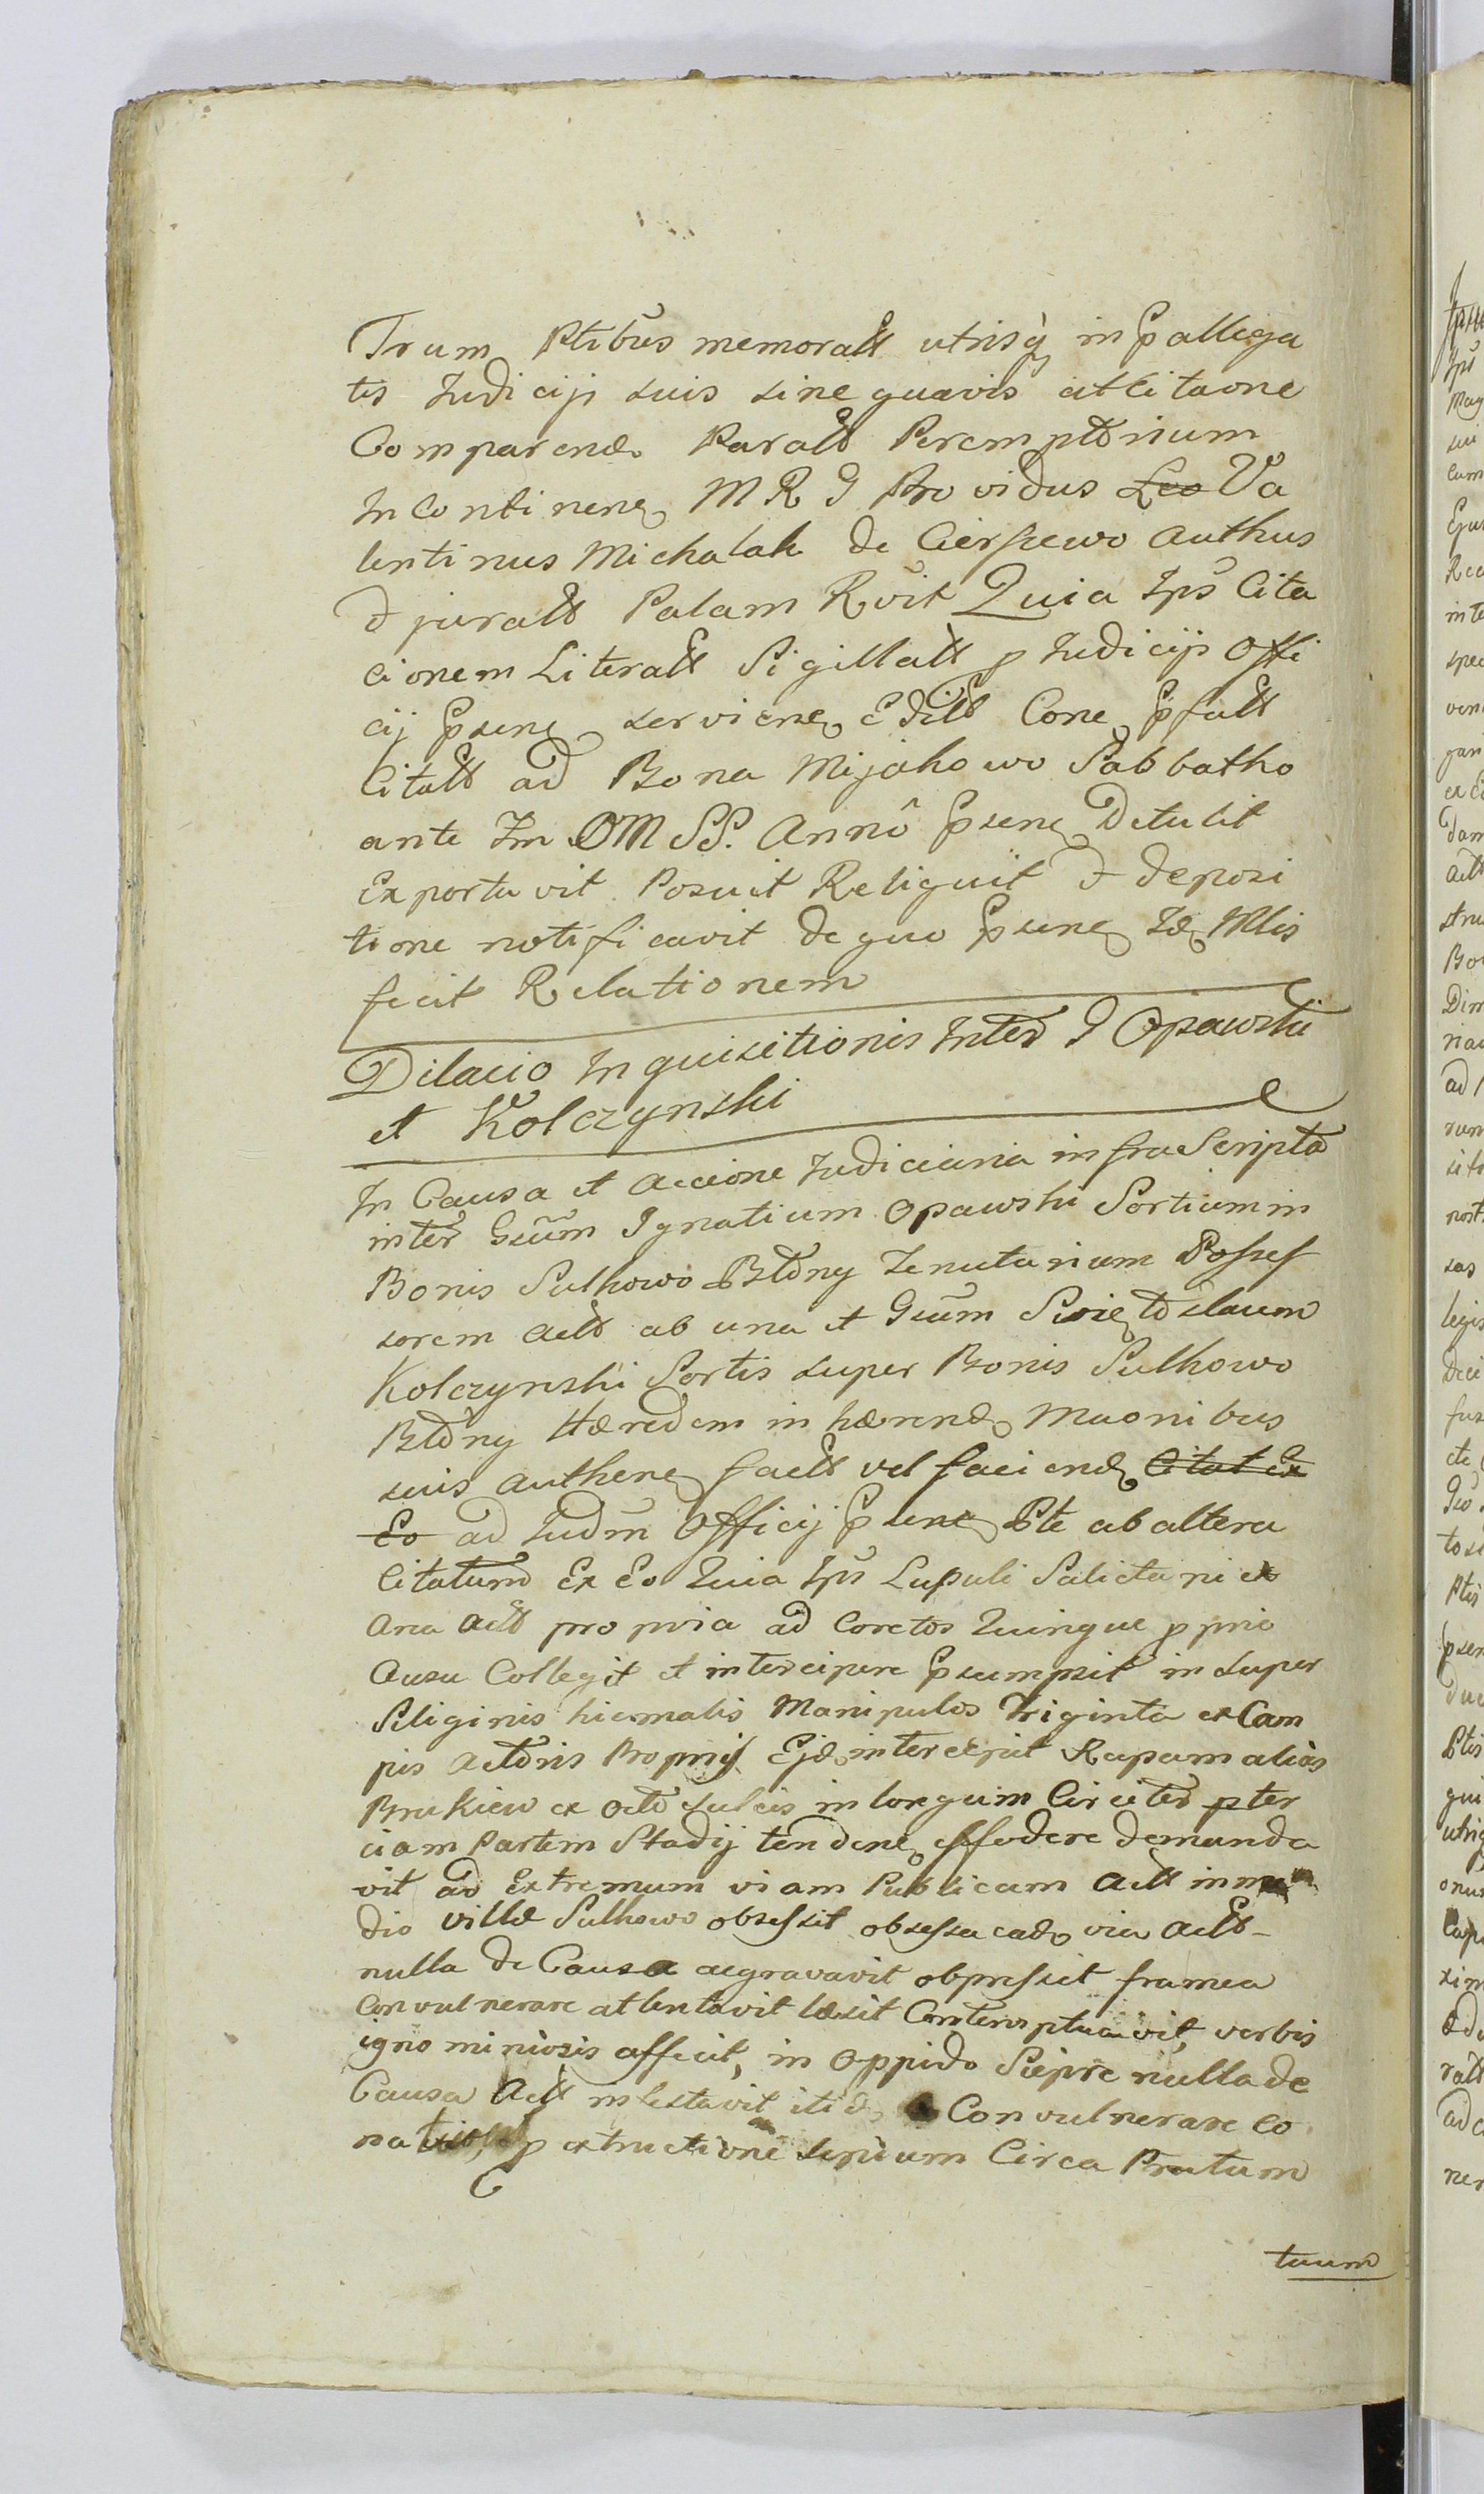 Trum Ptibus memoratt utrisq in Pallega
tis Judicijs suis sine quavis citlitaone
Comparend Paratt Peremptorium
In Continen MRG Providus Leo Va
lentinus Michalak de Cierpiewo Authus
& juratt Palam Rvit Quia Ips Cita
cionem Literatt Sigillatt p Judicijs Offi
cij Psene serviene Editt Cone Pfatt
Citatt ad Bona Mijakowo Sabbatho
ante Fm OM SS. Anno Psene Detulit
Exportavit Posuit Reliquit & deposi
tione notificavit de quo Psene Id Mtis
fecit Relationem
Dilacio Inquisitionis Inter G Opawski
et Kolczynski
In Causa et accione Judiciaria infra Scripta
inter Gsum Ignatium Opawski Sortium in
Bonis Sulkowo Btdny Tenutarium Posses
sorem actt ab una et Gsum Swiętoslaum
Kolczynski Sortis super Bonis Sulkowo
Btdny Hæredem in hærend Muonibus
suis authene factt vel faciend Citat Ex
Eo ad Judm Officij Psene Pte ab altera
Citatum Ex Eo Quia Ips Lupuli Salictarij ex
Area actt propria ad Coretos Quinque p prio
Ausu Collegit et intercipere Psumpsit in super
Siliginis hiemalis Manipulos Triginta ex Cam
pis Actoris Proprijs Ejd intercepit Rapam alias
Brukiew ex octo sulcis in longum Circiter p ter
ciam Partem Stadij tendene effodere demanda
vit ad Extremum viam Publicam actt in me
dio villæ Sulkowo obsessit obsessa ead via actt
nulla de Causa aegravavit obpressit framea
Convulnerare attentavit læsit Contemptuavit, verbis
ignominiosis affecit, in oppido Sieprc nulla de
Causa Actt infestavit itid Convulnerare co
na p extructione sepium Circa Pratum
tuum